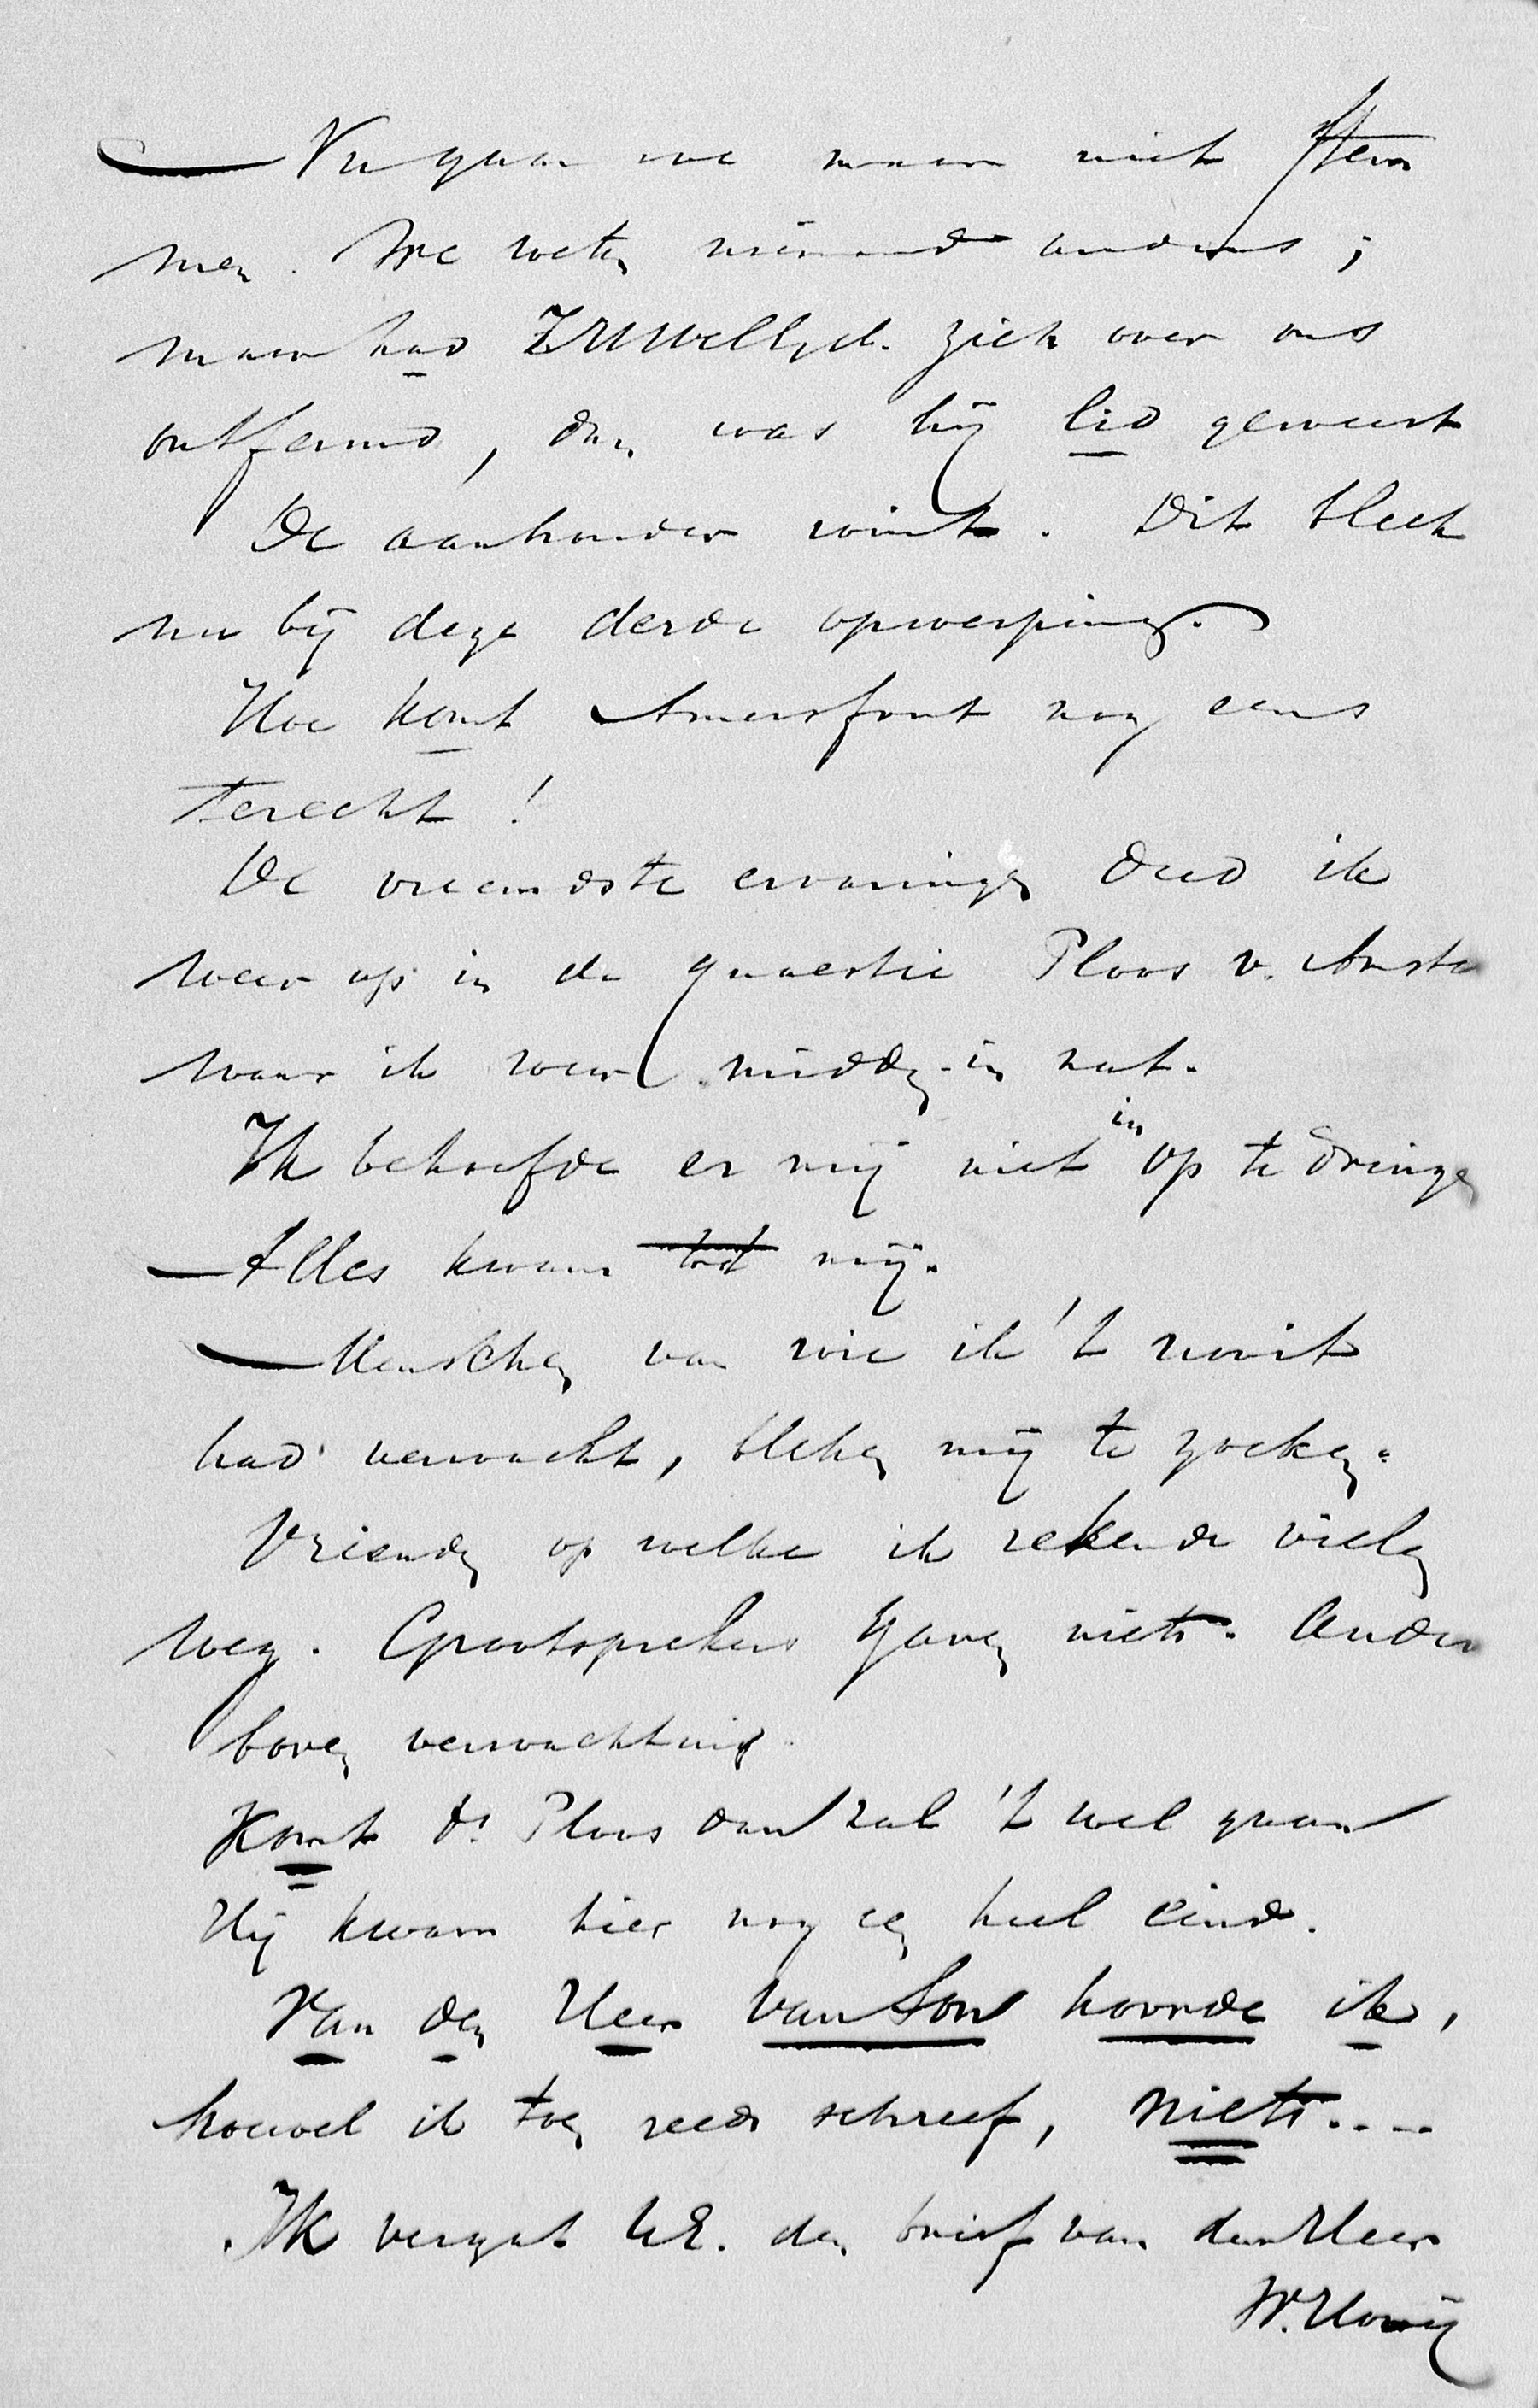 — Nu gaan we maar niet stem
men. We weten niemand anders ;
maar had ZWWellEd. zich over ons
ontfermd, dan was hij lid geweest
De aanhouder wint. Dit bleek
nu bij deze derde opwerping.
Hoe komt Amersfoort nog eens
terecht !
De vreemdste ervaringen deed ik
weer op in de quaestie Ploos v. Amste
waar ik weer midden-in zat.
Ik behoefde er mij niet in op te dringen
— Alles kwam tot mij.
— Menschen van wie ik 't nooit
had verwacht, bleken mij te zoeken.
Vrienden op welke ik rekende vielen
weg. Grootsprekers gaven niets. Ander
boven verwachting.
Komt Ds Ploos dan zal 't wel gaan
Hij kwam hier nog een heel eind.
Van den Heer van Son hoorde ik,
hoewel ik toen reeds schreef, niets....
Ik vergat UE. den brief van den Heer
W. Hovij